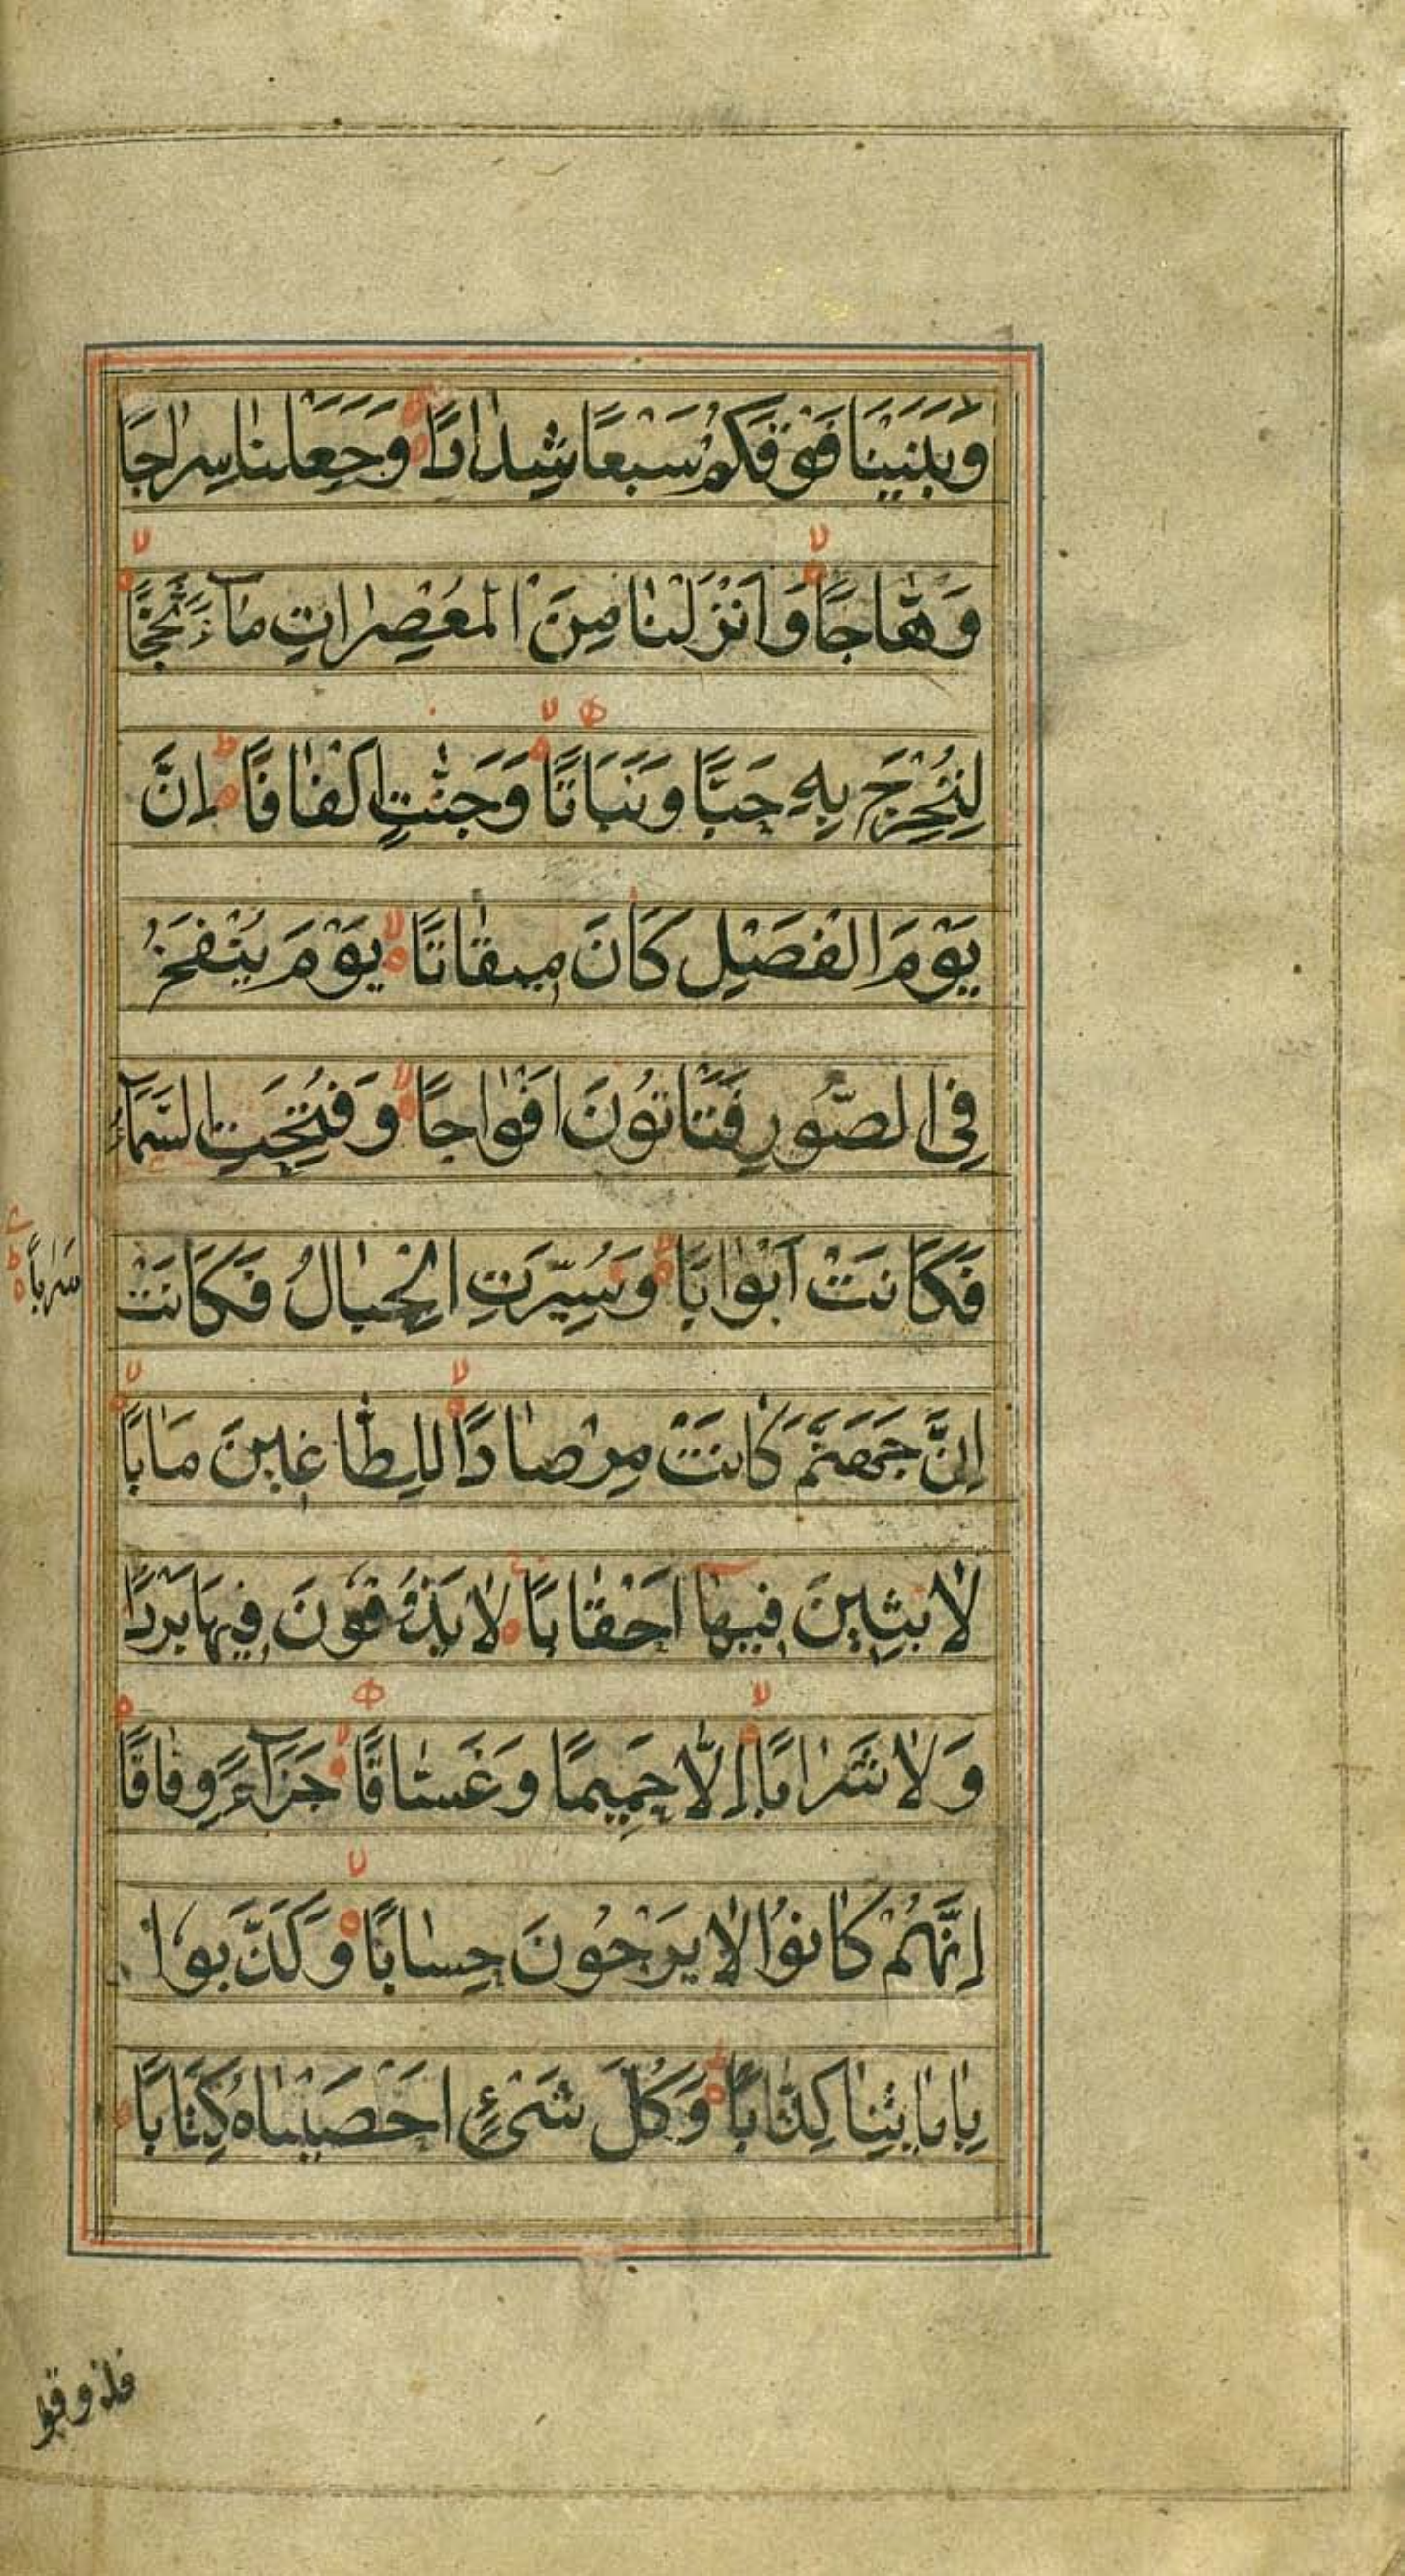 وَبَنَيْنَا فَوْقَكُمْ سَبْعًا شِدَادًا وَجَعَلْنَا سِرَاجًا
وَهَّاجًا وَاَنْزَلْنَا مِنَ الْمُعْصِرَاتِ مَآءً ثَجَّاجًا
لِنُخْرِجَ بِهِ حَبًّا وَنَبَاتًا وَجَنّٰتٍ اَلْفَافًا اِنَّ
يَوْمَ الْفَصْلِ كَانَ مِيقَاتًا يَوْمَ يُنْفَخُ
فِي الصُّورِ فَتَاْتُونَ اَفْوَاجًا وَفُتِحَتِ السَّمَآءُ
فَكَانَتْ اَبْوَابًا وَسُيِّرَتِ الْجِبَالُ فَكَانَتْ
سَرَابًا
اِنَّ جَهَنَّمَ كَانَتْ مِرْصَادًا لِلطَّاغِينَ مَاٰبًا
لَابِثِينَ فِيهَا اَحْقَابًا لَا يَذُوقُونَ فِيهَا بَرْدًا
وَلَا شَرَابًا اِلَّا حَمِيمًا وَغَسَّاقًا جَزَآءً وِفَاقًا
اِنَّهُمْ كَانُوا لَا يَرْجُونَ حِسَابًا وَكَذَّبُوا
بِاٰيَاتِنَا كِذَّابًا وَكُلَّ شَيْءٍ اَحْصَيْنَاهُ كِتَابًا
فذوقوا